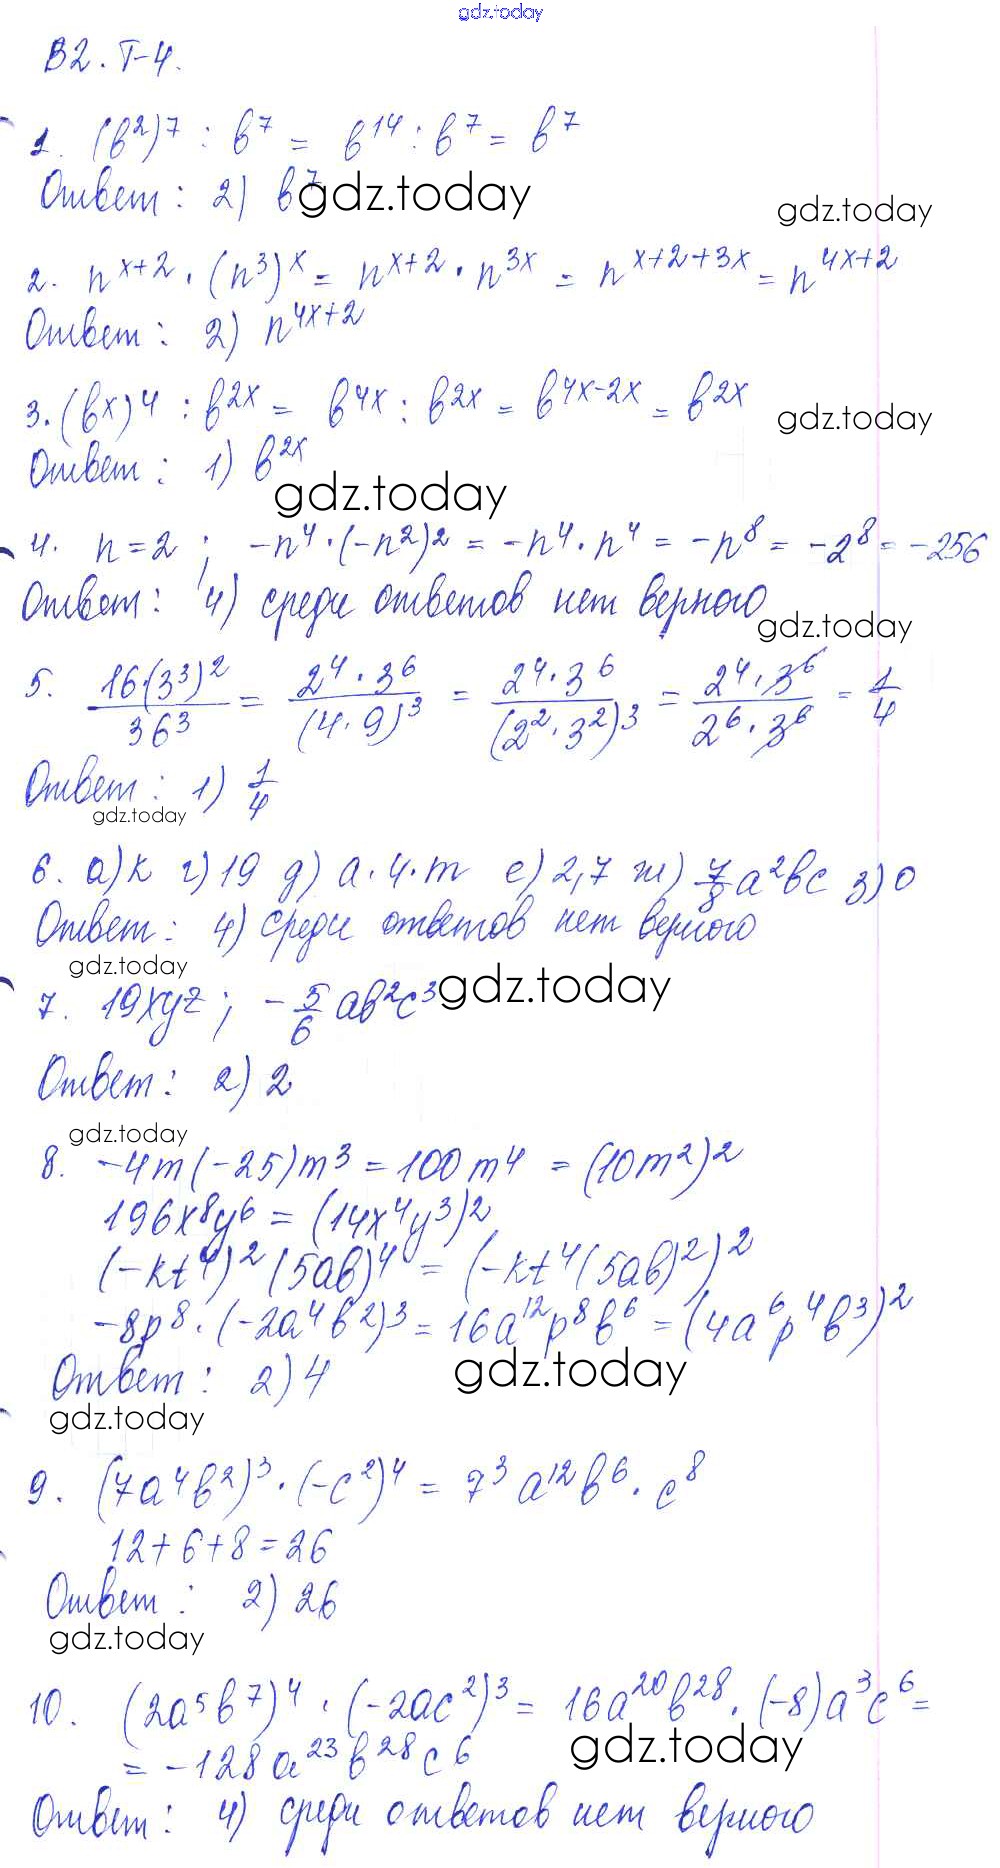 gdz.today
В2. Т-4.
1. (b²)⁷ : b⁷ = b¹⁴ : b⁷ = b⁷
Ответ: 2) b⁷
gdz.today
gdz.today
2. n^(x+2) · (n³)^x = n^(x+2) · n^(3x) = n^(x+2+3x) = n^(4x+2)
Ответ: 2) n^(4x+2)
3. (b^x)⁴ : b^(2x) = b^(4x) : b^(2x) = b^(4x-2x) = b^(2x)
gdz.today
Ответ: 1) b^(2x)
gdz.today
4. n=2; -n⁴·(-n²)² = -n⁴·n⁴ = -n⁸ = -2⁸ = -256
Ответ: 4) среди ответов нет верного
gdz.today
5. 16·(3³)²/36³ = 2⁴·3⁶/(4·9)³ = 2⁴·3⁶/(2²·3²)³ = 2⁴·3⁶/2⁶·3⁶ = 1/4
Ответ: 1) 1/4
gdz.today
6. а) k г) 19 д) a·4·m е) 2,7 ж) 7/8 a²bc з) 0
Ответ: 4) среди ответов нет верного
gdz.today
gdz.today
7. 19xyz; -5/6 ab²c³
Ответ: 2) 2
gdz.today
8. -4m(-25)m³ = 100m⁴ = (10m²)²
196x⁸y⁶ = (14x⁴y³)²
(-kt⁴)²(5ab)⁴ = (-kt⁴(5ab)²)²
-8p⁸·(-2a⁴b²)³ = 16a¹²p⁸b⁶ = (4a⁶p⁴b³)²
Ответ: 2) 4
gdz.today
gdz.today
9. (7a⁴b²)³·(-c²)⁴ = 7³a¹²b⁶·c⁸
12+6+8=26
Ответ: 2) 26
gdz.today
10. (2a⁵b⁷)⁴·(-2ac²)³ = 16a²⁰b²⁸·(-8)a³c⁶ =
= -128a²³b²⁸c⁶
gdz.today
Ответ: 4) среди ответов нет верного